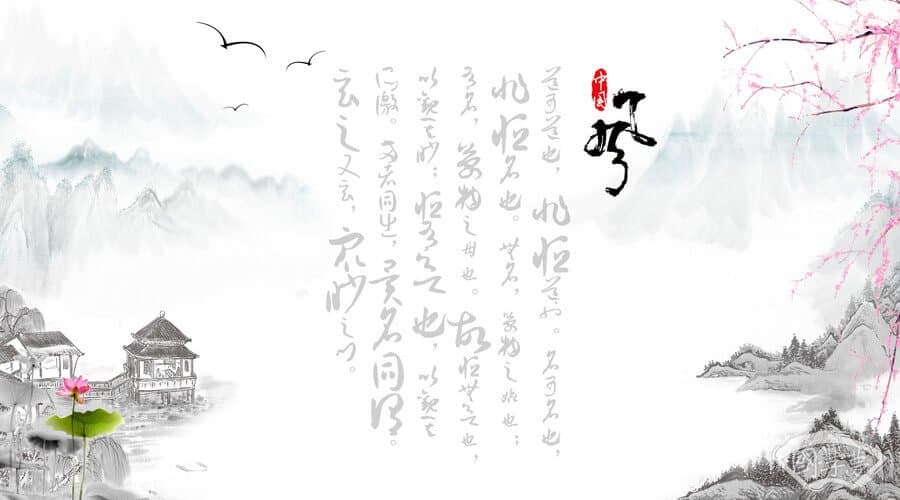 中国
風
道可道也，非恒道也。名可名也，
非恒名也。無名，萬物之始也；
有名，萬物之母也。故恒無欲也，
以觀其眇；恒有欲也，以觀其
所徼。两者同出，異名同謂。
玄之又玄，眾眇之门。